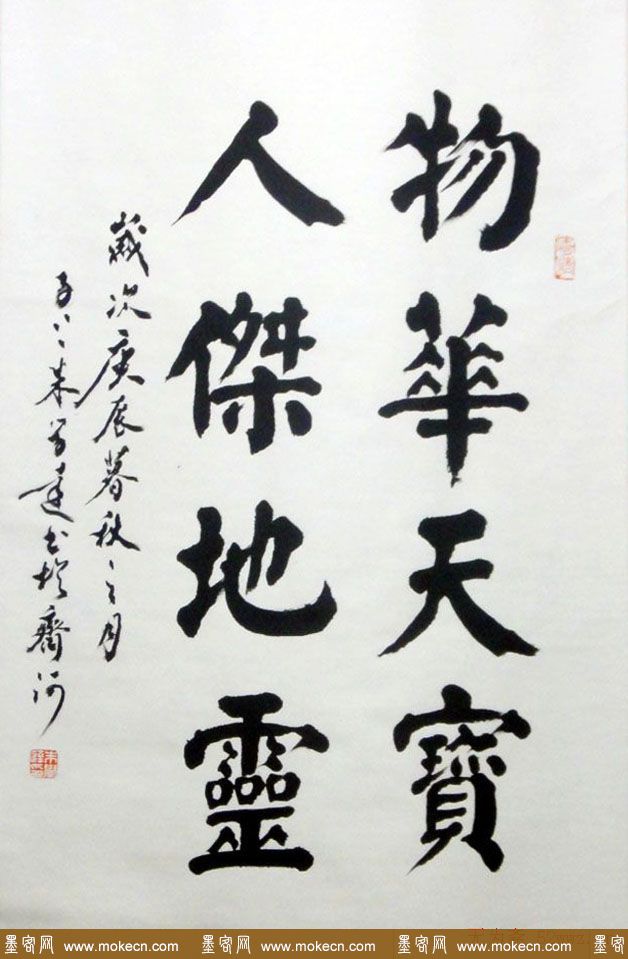 物華天寶
人傑地靈
歲次庚辰暮秋之月
朱學達書於齊河
墨客网 www.mokecn.com 墨客网 www.mokecn.com 墨客网 www.mokecn.com 墨客网